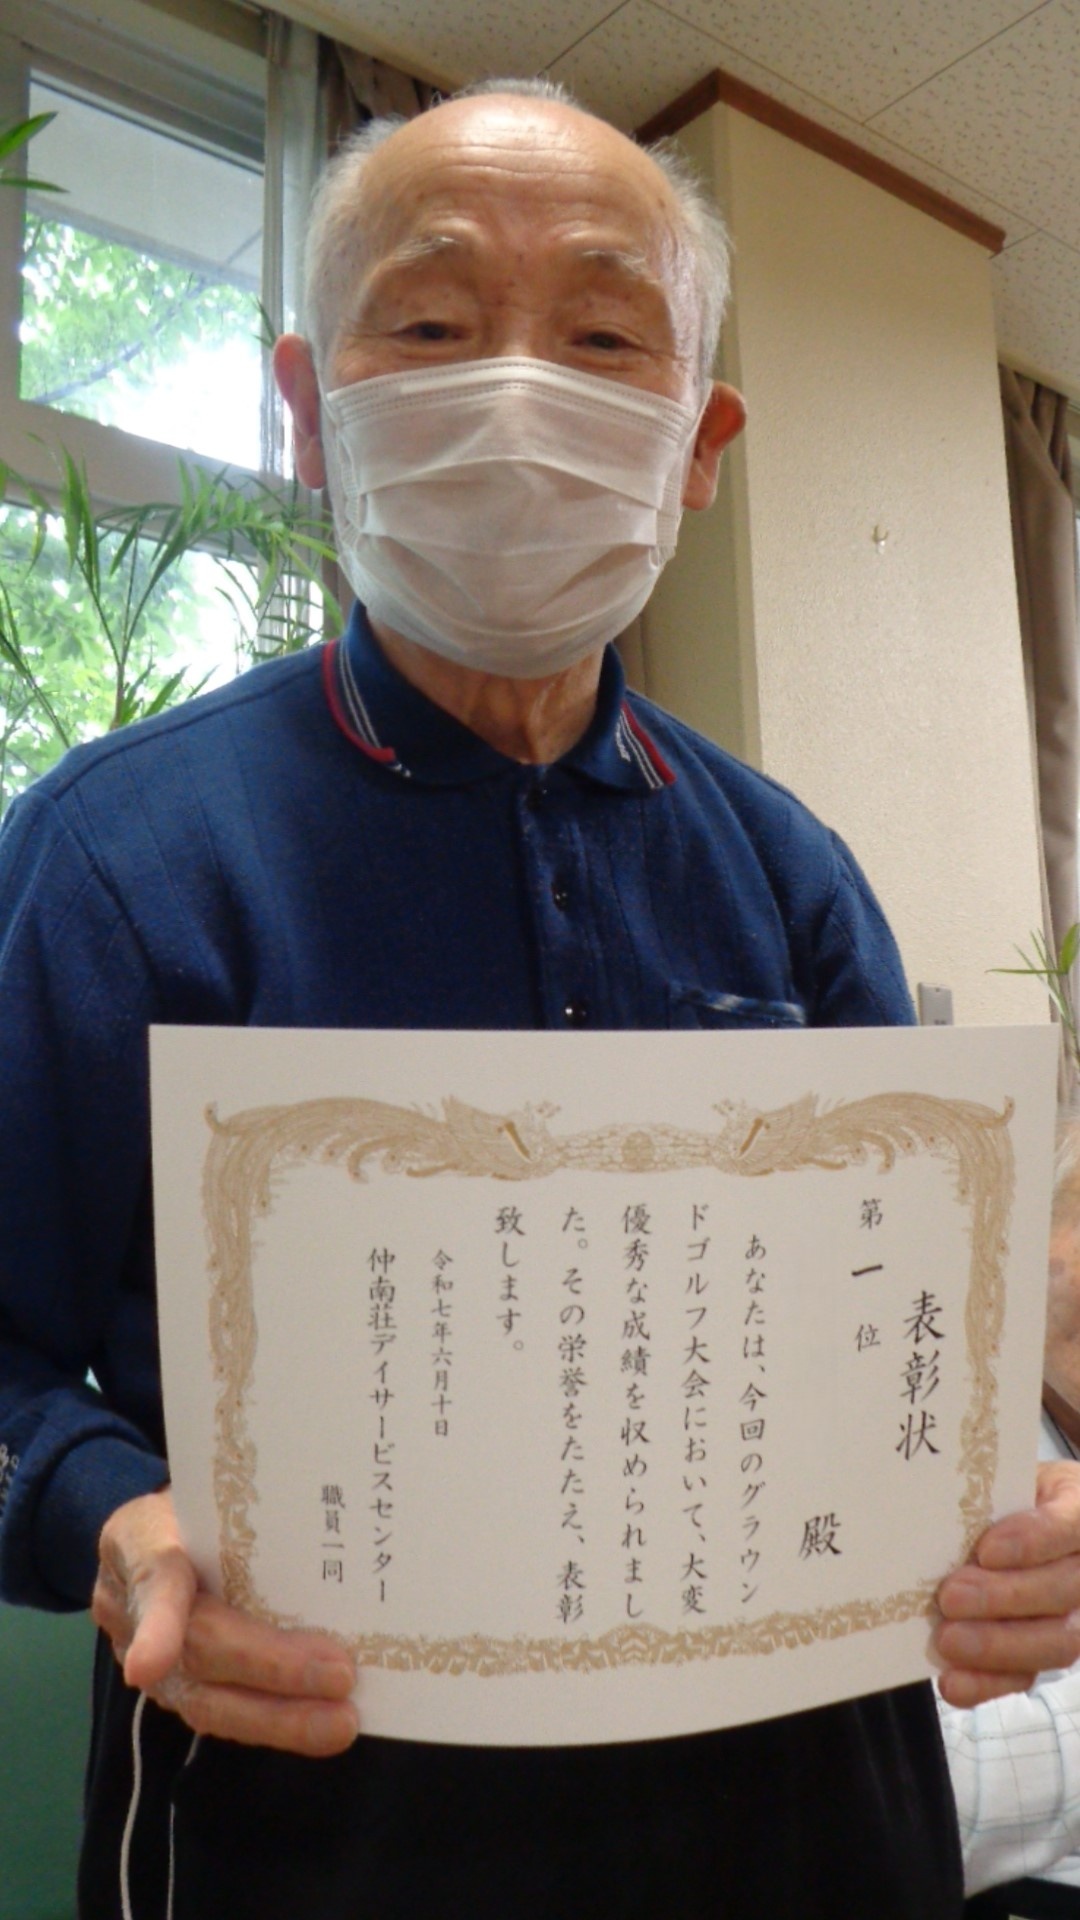 表彰状
第一位
殿
あなたは、今回のグラウン
ドゴルフ大会において、大変
優秀な成績を収められまし
た。その栄誉をたたえ、表彰
致します。
令和七年六月十日
仲南荘デイサービスセンター
職員一同